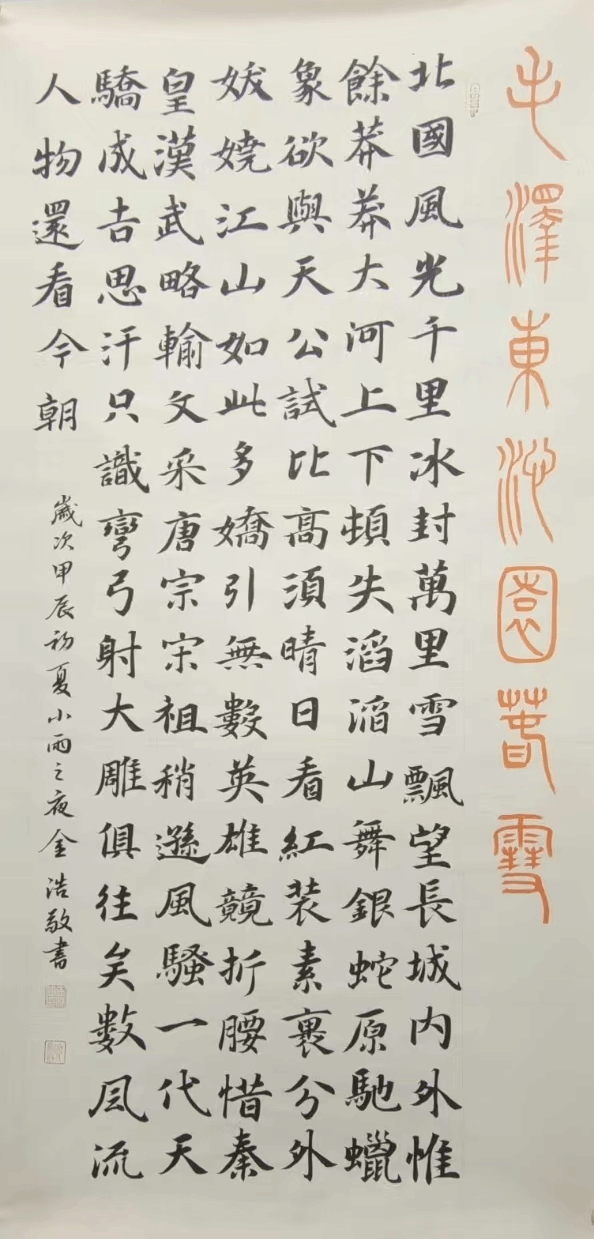 毛澤東沁園春雪
北國風光千里冰封萬里雪飄望長城內外惟
餘莽莽大河上下頓失滔滔山舞銀蛇原馳蠟
象欲與天公試比高須晴日看紅裝素裹分外
妖嬈江山如此多嬌引無數英雄競折腰惜秦
皇漢武略輸文采唐宗宋祖稍遜風騷一代天
驕成吉思汗只識彎弓射大雕俱往矣數風流
人物還看今朝
歲次甲辰初夏小雨之夜金浩敬書